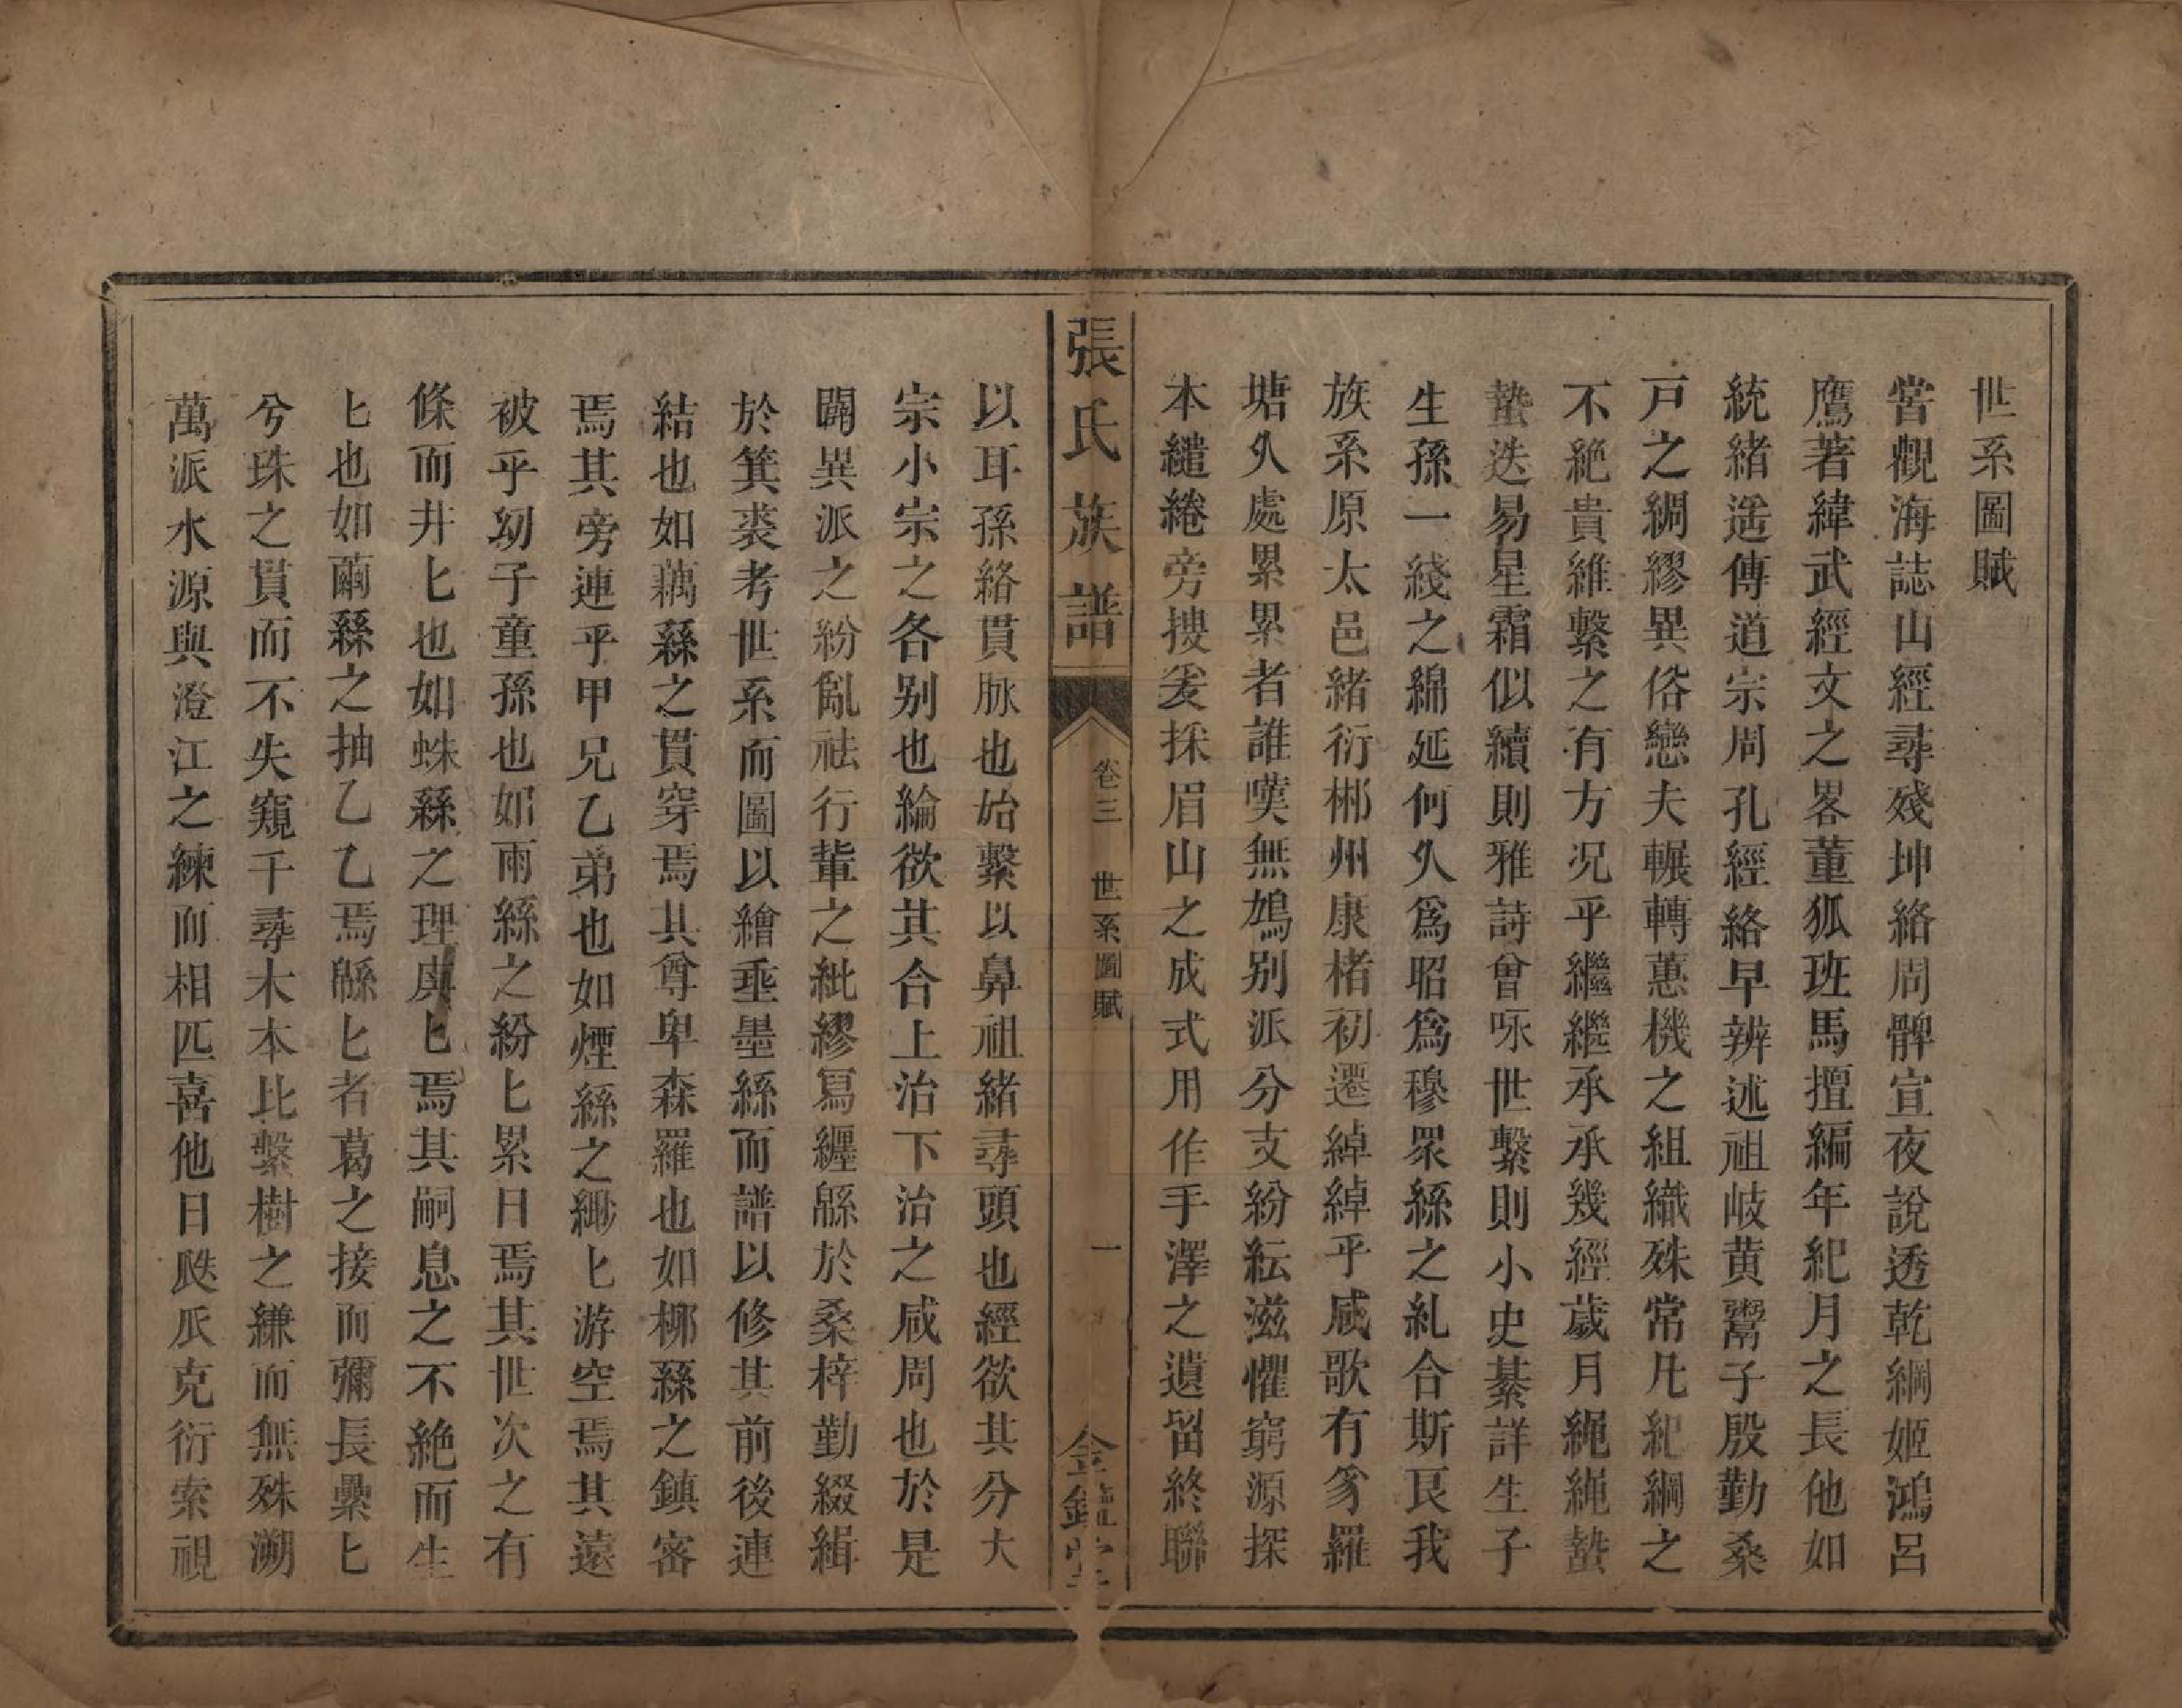 世系圖賦
嘗覩海誌山經尋殘坤絡周髀宣夜說透乾綱姬鴻呂
鷹著緯武經文之畧董狐班馬擅編年紀月之長他如
統緒遥傳道宗周孔經絡早辨述祖岐黄鬻子殷勤桑
戸之綢繆異俗戀夫輾轉蕙機之組織殊常凡紀綱之
不絶貴維繫之有方况乎繼繼承承幾經歲月繩繩蟄
蟄迭易星霜似續則雅詩曾咏世繫則小史綦詳生子
生孫一綫之綿延何久爲昭爲穆眾絲之糺合斯艮我
族系原太邑緒衍郴州康楮初遷綽綽乎感歌有豸羅
塘久處累累者誰嘆無鳩别派分支紛紜滋懼窮源探
本繾綣旁搜爰採眉山之成式用作手澤之遺留終聯
張氏族譜
卷三 世系圖賦 一
金鑑堂
以耳孫絡貫脉也始繫以鼻祖緒尋頭也經欲其分大
宗小宗之各别也綸欲其合上治下治之咸周也於是
闢異派之紛亂祛行輩之紕繆寫纒緜於桑梓勤綴緝
於箕裘考世系而圖以繪垂墨絲而譜以修其前後連
結也如藕絲之貫穿焉其尊卑森羅也如梛絲之鎮密
焉其旁連乎甲兄乙弟也如煙絲之緲匕游空焉其遠
被乎幼子童孫也如雨絲之紛匕累日焉其世次之有
條而井匕也如蛛絲之理奐匕焉其嗣息之不絶而生
匕也如繭絲之抽乙乙焉緜匕者葛之接而彌長纍匕
兮珠之貫而不失窺千尋木本比繫樹之縑而無殊溯
萬派水源與澄江之練而相匹喜他日瓞瓜克衍索視